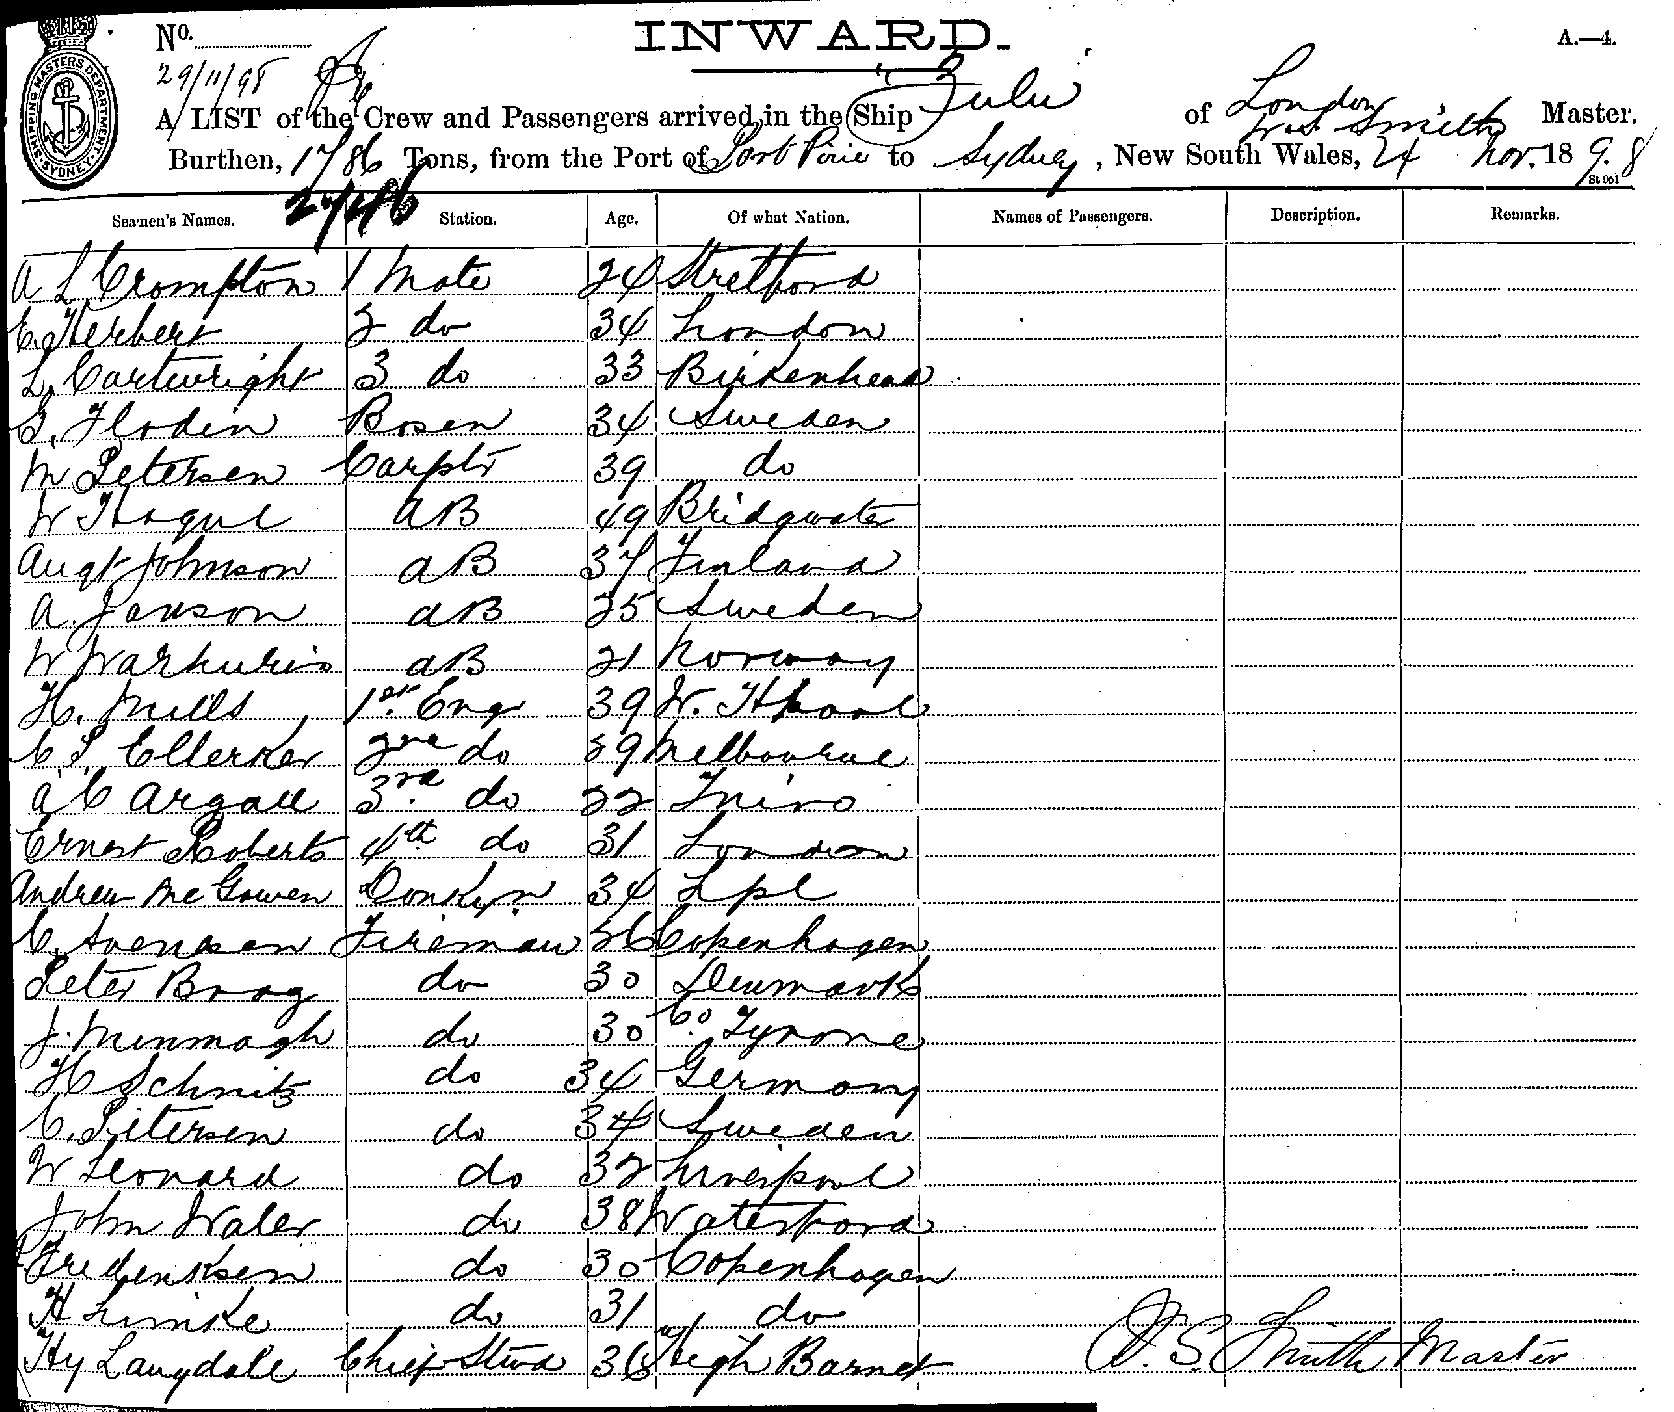 No.
INWARD.
A.—4.
29/11/98
A LIST of the Crew and Passengers arrived in the Ship Zulu of London W S Smith Master.
Burthen, 1786 Tons, from the Port of Port Pirie to Sydney, New South Wales, 24 Nov. 1898
St 991
SHIPPING MASTERS DEPARTMENT SYDNEY
Seamen's Names. Station. Age. Of what Nation. Names of Passengers. Description. Remarks.
A L Crompton 1 Mate 24 Stretford
E. Herbert 2 do 34 London
L. Cartwright 3 do 33 Birkenhead
G. Flodin Bosen 34 Sweden
M Petersen Carptr 39 do
W Hague AB 49 Bridgwater
Augt Johnson AB 37 Finland
A. Janson AB 25 Sweden
W AB 21 Norway
H. Mills 1st Eng 39 W. Hpool
C. S. Ellerker 2nd do 39 Melbourne
A C Argall 3rd do 22
Ernest Roberts 4th do 31 London
Andrew McGowen Donkyn 34 Lpl
C. Svensen Fireman 26 Copenhagen
Peter Brag do 30 Denmark
J. Minmagh do 30 Co. Tyrone
H Schmitz do 34 Germany
C. Petersen do 34 Sweden
W Leonard do 32 Liverpool
John Waler do 38 Waterford
Fredenksen do 30 Copenhagen
H Limke do 31 do
Hy Langdale Chief Stwd 36 High Barnet
W. S. Smith Master